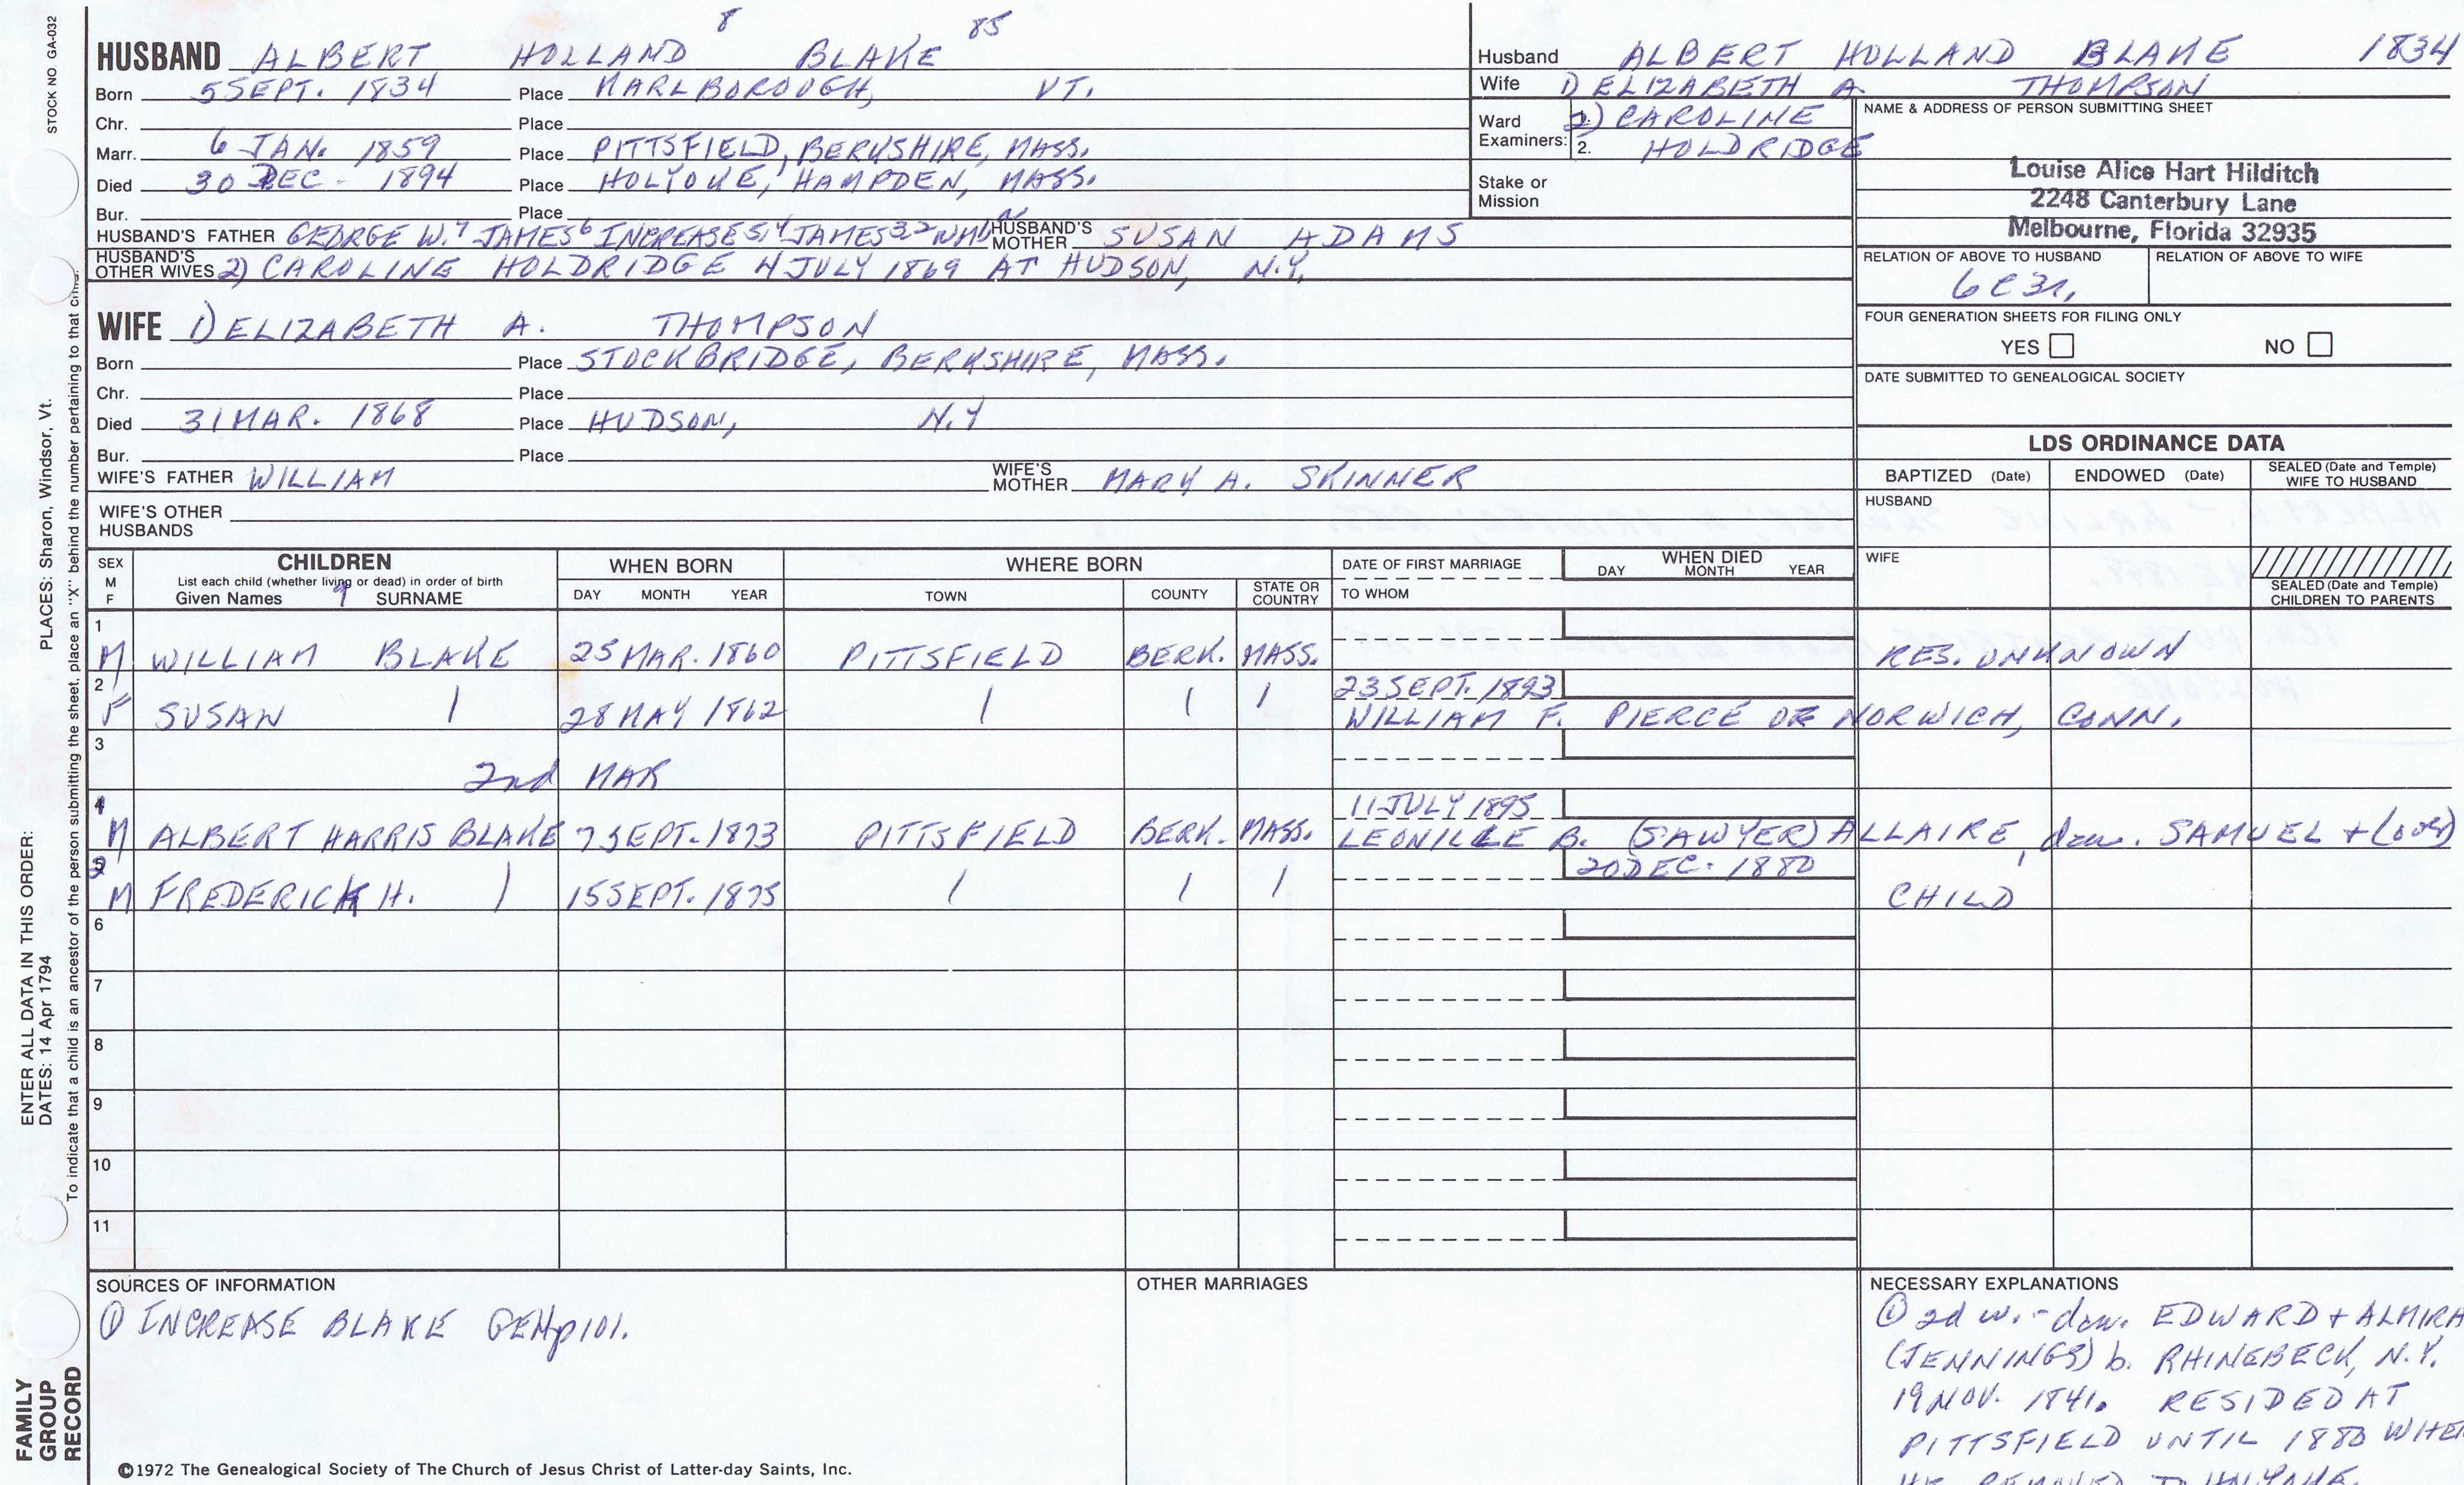 STOCK NO GA-032
8 85
HUSBAND ALBERT HOLLAND BLAKE
Born 5 SEPT. 1834 Place MARLBOROUGH, VT.
Chr. Place
Marr. 6 JAN. 1859 Place PITTSFIELD, BERKSHIRE, MASS.
Died 30 DEC - 1894 Place HOLYOKE, HAMPDEN, MASS.
Bur. Place
HUSBAND'S FATHER GEORGE W.7 JAMES6 INCREASE5,4 JAMES3,2 WM1 HUSBAND'S MOTHER SUSAN ADAMS
HUSBAND'S OTHER WIVES 2) CAROLINE HOLDRIDGE 4 JULY 1869 AT HUDSON, N.Y.
WIFE 1) ELIZABETH A. THOMPSON
Born Place STOCKBRIDGE, BERKSHIRE, MASS.
Chr. Place
Died 31 MAR. 1868 Place HUDSON, N.Y
Bur. Place
WIFE'S FATHER WILLIAM WIFE'S MOTHER MARY A. SKINNER
WIFE'S OTHER HUSBANDS
Husband ALBERT HOLLAND BLAKE 1834
Wife 1) ELIZABETH A. THOMPSON
Ward Examiners: 1. 2) CAROLINE
2. HOLDRIDGE
Stake or Mission
NAME & ADDRESS OF PERSON SUBMITTING SHEET
Louise Alice Hart Hilditch
2248 Canterbury Lane
Melbourne, Florida 32935
RELATION OF ABOVE TO HUSBAND RELATION OF ABOVE TO WIFE
6C3r,
FOUR GENERATION SHEETS FOR FILING ONLY
YES NO
DATE SUBMITTED TO GENEALOGICAL SOCIETY
LDS ORDINANCE DATA
BAPTIZED (Date) ENDOWED (Date) SEALED (Date and Temple) WIFE TO HUSBAND
HUSBAND
WIFE
SEALED (Date and Temple) CHILDREN TO PARENTS
SEX M F CHILDREN WHEN BORN WHERE BORN DATE OF FIRST MARRIAGE WHEN DIED
List each child (whether living or dead) in order of birth
Given Names 9 SURNAME DAY MONTH YEAR TOWN COUNTY STATE OR COUNTRY TO WHOM DAY MONTH YEAR
1
M WILLIAM BLAKE 25 MAR. 1860 PITTSFIELD BERK. MASS. RES. UNKNOWN
2 23 SEPT. 1893
F SUSAN | 28 MAY 1862 | | | WILLIAM F. PIERCE OF NORWICH, CONN.
3
2nd MAR
4 11 JULY 1895
M ALBERT HARRIS BLAKE 7 SEPT. 1873 PITTSFIELD BERK. MASS. LEONILLE B. (SAWYER) ALLAIRE, dau. SAMUEL + (over)
5 20 DEC. 1880
M FREDERICK H. | 15 SEPT. 1875 | | | CHILD
6
7
8
9
10
11
SOURCES OF INFORMATION
① INCREASE BLAKE GEN p101.
OTHER MARRIAGES
NECESSARY EXPLANATIONS
① 2d w. - dau. EDWARD + ALMIRA
(JENNINGS) b. RHINEBECK, N.Y.
19 NOV. 1841. RESIDED AT
PITTSFIELD UNTIL 1880 WHEN
HE REMOVED TO HOLYOKE.
©1972 The Genealogical Society of The Church of Jesus Christ of Latter-day Saints, Inc.
ENTER ALL DATA IN THIS ORDER:
DATES: 14 Apr 1794
PLACES: Sharon, Windsor, Vt.
To indicate that a child is an ancestor of the person submitting the sheet, place an "X" behind the number pertaining to that
FAMILY
GROUP
RECORD